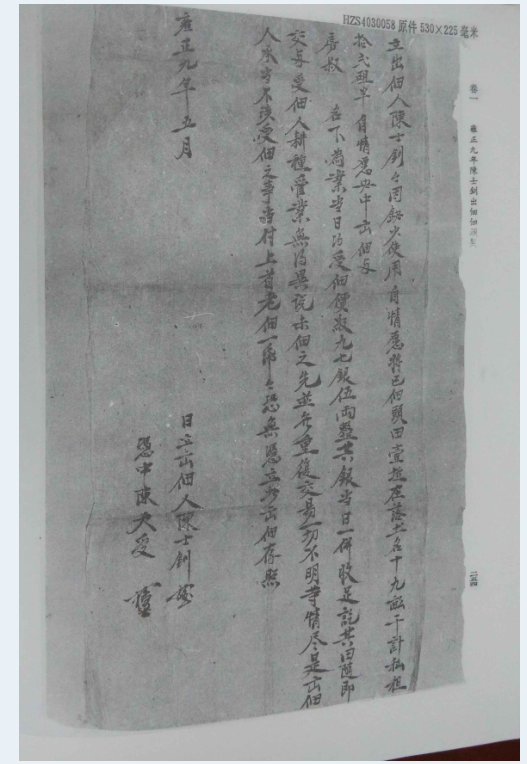 HZS4030058 原件 530×225 毫米
卷一 雍正九年陳士釗出佃佃
立出佃人陳士釗今因缺少使用自情愿將己佃頭田壹坵在落土名十九畝干計私租
拾弍租半自情愿央中出佃与
房叔 名下為業当日得受佃價紋九七銀伍両整其銀当日一併收足訖其田隨即
交与受佃人耕種管業無得異說未佃之先並無重復交易一切不明等情尽是出佃
人承当不渉受佃之事尋付上首老佃一帋今恐無憑立此出佃存照
雍正九年五月
日立出佃人陳士釗
憑中陳大受
二四